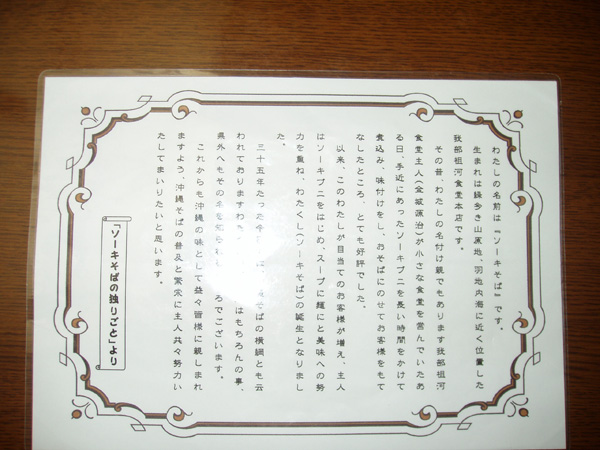 わたしの名前は『ソーキそば』です。
生まれは緑多き山原地、羽地内海に近く位置した
我部祖河食堂本店です。
その昔、わたしの名付け親でもあります我部祖河
食堂主人(金城源治)が小さな食堂を営んでいたあ
る日、手近にあったソーキブニを長い時間をかけて
煮込み、味付けをし、おそばにのせてお客様をもて
なしたところ、とても好評でした。
以来、このわたしが目当てのお客様が増え、主人
はソーキブニをはじめ、スープに麺にと美味への努
力を重ね、わたくし(ソーキそば)の誕生となりまし
た。
三十五年たった今 そばの横綱とも云
われておりますわた はもちろんの事、
県外へもその名を知られ ろでございます。
これからも沖縄の味として益々皆様に親しまれ
ますよう、沖縄そばの普及と繁栄に主人共々努力い
たしてまいりたいと思います。
「ソーキそばの独りごと」より